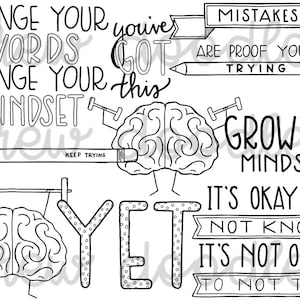 NGE YOUR
WORDS
NGE YOUR
INDSET
you've
GOT
this
MISTAKES
ARE PROOF YO
TRYING
KEEP TRYING
GROW
MINDS
YET
IT'S OKAY
NOT KNO
IT'S NOT O
TO NOT T